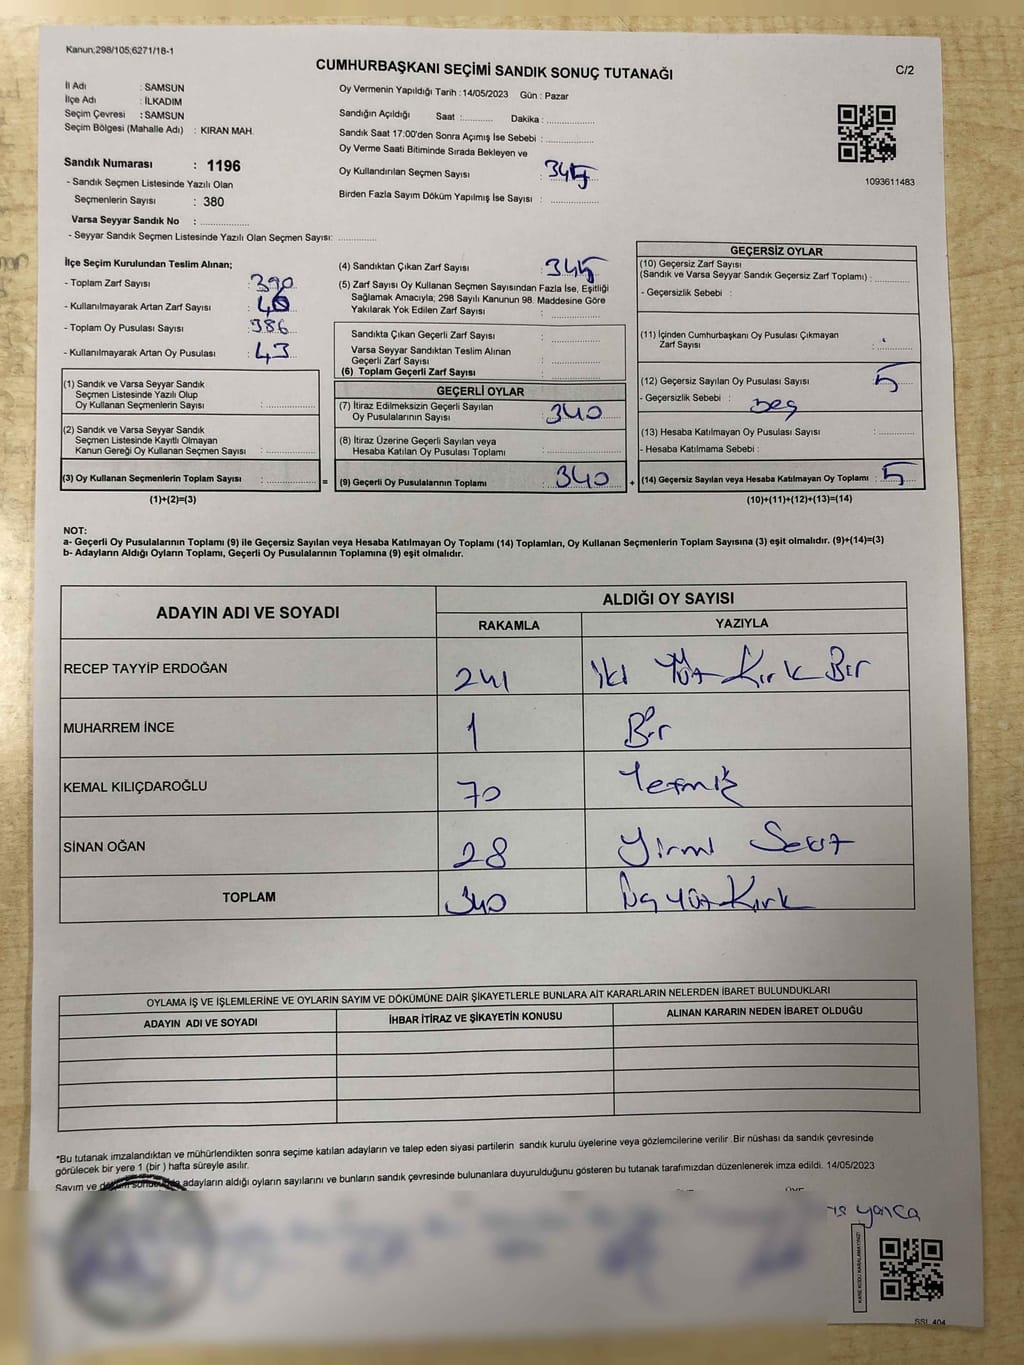 Kanun;298/105;6271/18-1
C/2
CUMHURBAŞKANI SEÇİMİ SANDIK SONUÇ TUTANAĞI
İl Adı : SAMSUN
İlçe Adı : İLKADIM
Seçim Çevresi : SAMSUN
Seçim Bölgesi (Mahalle Adı) : KIRAN MAH.
Sandık Numarası : 1196
- Sandık Seçmen Listesinde Yazılı Olan
Seçmenlerin Sayısı : 380
Varsa Seyyar Sandık No : ...............
- Seyyar Sandık Seçmen Listesinde Yazılı Olan Seçmen Sayısı: ............
Oy Vermenin Yapıldığı Tarih : 14/05/2023 Gün : Pazar
Sandığın Açıldığı Saat :........... Dakika :...............
Sandık Saat 17:00'den Sonra Açımış İse Sebebi : ...............
Oy Verme Saati Bitiminde Sırada Bekleyen ve
Oy Kullandırılan Seçmen Sayısı : 345
Birden Fazla Sayım Döküm Yapılmış İse Sayısı : ...............
1093611483
İlçe Seçim Kurulundan Teslim Alınan;
- Toplam Zarf Sayısı : 390
- Kullanılmayarak Artan Zarf Sayısı :
- Toplam Oy Pusulası Sayısı : 386
- Kullanılmayarak Artan Oy Pusulası : 43
(1) Sandık ve Varsa Seyyar Sandık
Seçmen Listesinde Yazılı Olup
Oy Kullanan Seçmenlerin Sayısı : ...............
(2) Sandık ve Varsa Seyyar Sandık
Seçmen Listesinde Kayıtlı Olmayan
Kanun Gereği Oy Kullanan Seçmen Sayısı : ...............
(3) Oy Kullanan Seçmenlerin Toplam Sayısı : ............... =
(1)+(2)=(3)
(4) Sandıktan Çıkan Zarf Sayısı : 345
(5) Zarf Sayısı Oy Kullanan Seçmen Sayısından Fazla İse, Eşitliği
Sağlamak Amacıyla; 298 Sayılı Kanunun 98. Maddesine Göre
Yakılarak Yok Edilen Zarf Sayısı : ...............
Sandıkta Çıkan Geçerli Zarf Sayısı : ...............
Varsa Seyyar Sandıktan Teslim Alınan
Geçerli Zarf Sayısı : ...............
(6) Toplam Geçerli Zarf Sayısı : ...............
GEÇERLİ OYLAR
(7) İtiraz Edilmeksizin Geçerli Sayılan
Oy Pusulalarının Sayısı : 340
(8) İtiraz Üzerine Geçerli Sayılan veya
Hesaba Katılan Oy Pusulaları Toplamı : ...............
(9) Geçerli Oy Pusulalarının Toplamı : 340 +
GEÇERSİZ OYLAR
(10) Geçersiz Zarf Sayısı
(Sandık ve Varsa Seyyar Sandık Geçersiz Zarf Toplamı) : ............
- Geçersizlik Sebebi :
(11) İçinden Cumhurbaşkanı Oy Pusulası Çıkmayan
Zarf Sayısı : ............
(12) Geçersiz Sayılan Oy Pusulası Sayısı : 5
- Geçersizlik Sebebi : Beş
(13) Hesaba Katılmayan Oy Pusulası Sayısı : ............
- Hesaba Katılmama Sebebi :
(14) Geçersiz Sayılan veya Hesaba Katılmayan Oy Toplamı : 5
(10)+(11)+(12)+(13)=(14)
NOT:
a- Geçerli Oy Pusulalarının Toplamı (9) ile Geçersiz Sayılan veya Hesaba Katılmayan Oy Toplamı (14) Toplamları, Oy Kullanan Seçmenlerin Toplam Sayısına (3) eşit olmalıdır. (9)+(14)=(3)
b- Adayların Aldığı Oyların Toplamı, Geçerli Oy Pusulalarının Toplamına (9) eşit olmalıdır.
ADAYIN ADI VE SOYADI
ALDIĞI OY SAYISI
RAKAMLA YAZIYLA
RECEP TAYYİP ERDOĞAN 241 iki Yüz Kırk Bir
MUHARREM İNCE 1 Bir
KEMAL KILIÇDAROĞLU 70 Yetmiş
SİNAN OĞAN 28 Yirmi Sekiz
TOPLAM 340 Üç Yüz Kırk
OYLAMA İŞ VE İŞLEMLERİNE VE OYLARIN SAYIM VE DÖKÜMÜNE DAİR ŞİKAYETLERLE BUNLARA AİT KARARLARIN NELERDEN İBARET BULUNDUKLARI
ADAYIN ADI VE SOYADI İHBAR İTİRAZ VE ŞİKAYETİN KONUSU ALINAN KARARIN NEDEN İBARET OLDUĞU
*Bu tutanak imzalandıktan ve mühürlendikten sonra seçime katılan adayların ve talep eden siyasi partilerin sandık kurulu üyelerine veya gözlemcilerine verilir .Bir nüshası da sandık çevresinde
görülecek bir yere 1 (bir ) hafta süreyle asılır.
Sayım ve döküm adayların aldığı oyların sayılarını ve bunların sandık çevresinde bulunanlara duyurulduğunu gösteren bu tutanak tarafımızdan düzenlenerek imza edildi. 14/05/2023
SSL 404